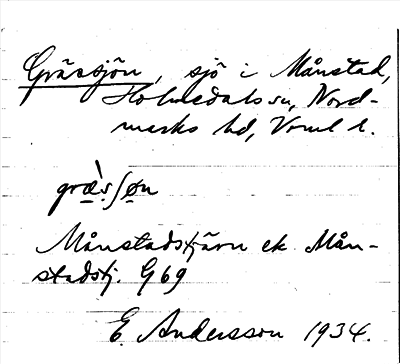 Grässjön, sjö i Månstad,
Holmedals sn, Nord-
marks hd, Vrml l.
græ`s ʃøn
Månstadstjärn ek. Mån-
stadstj. G69
E. Andersson 1934.